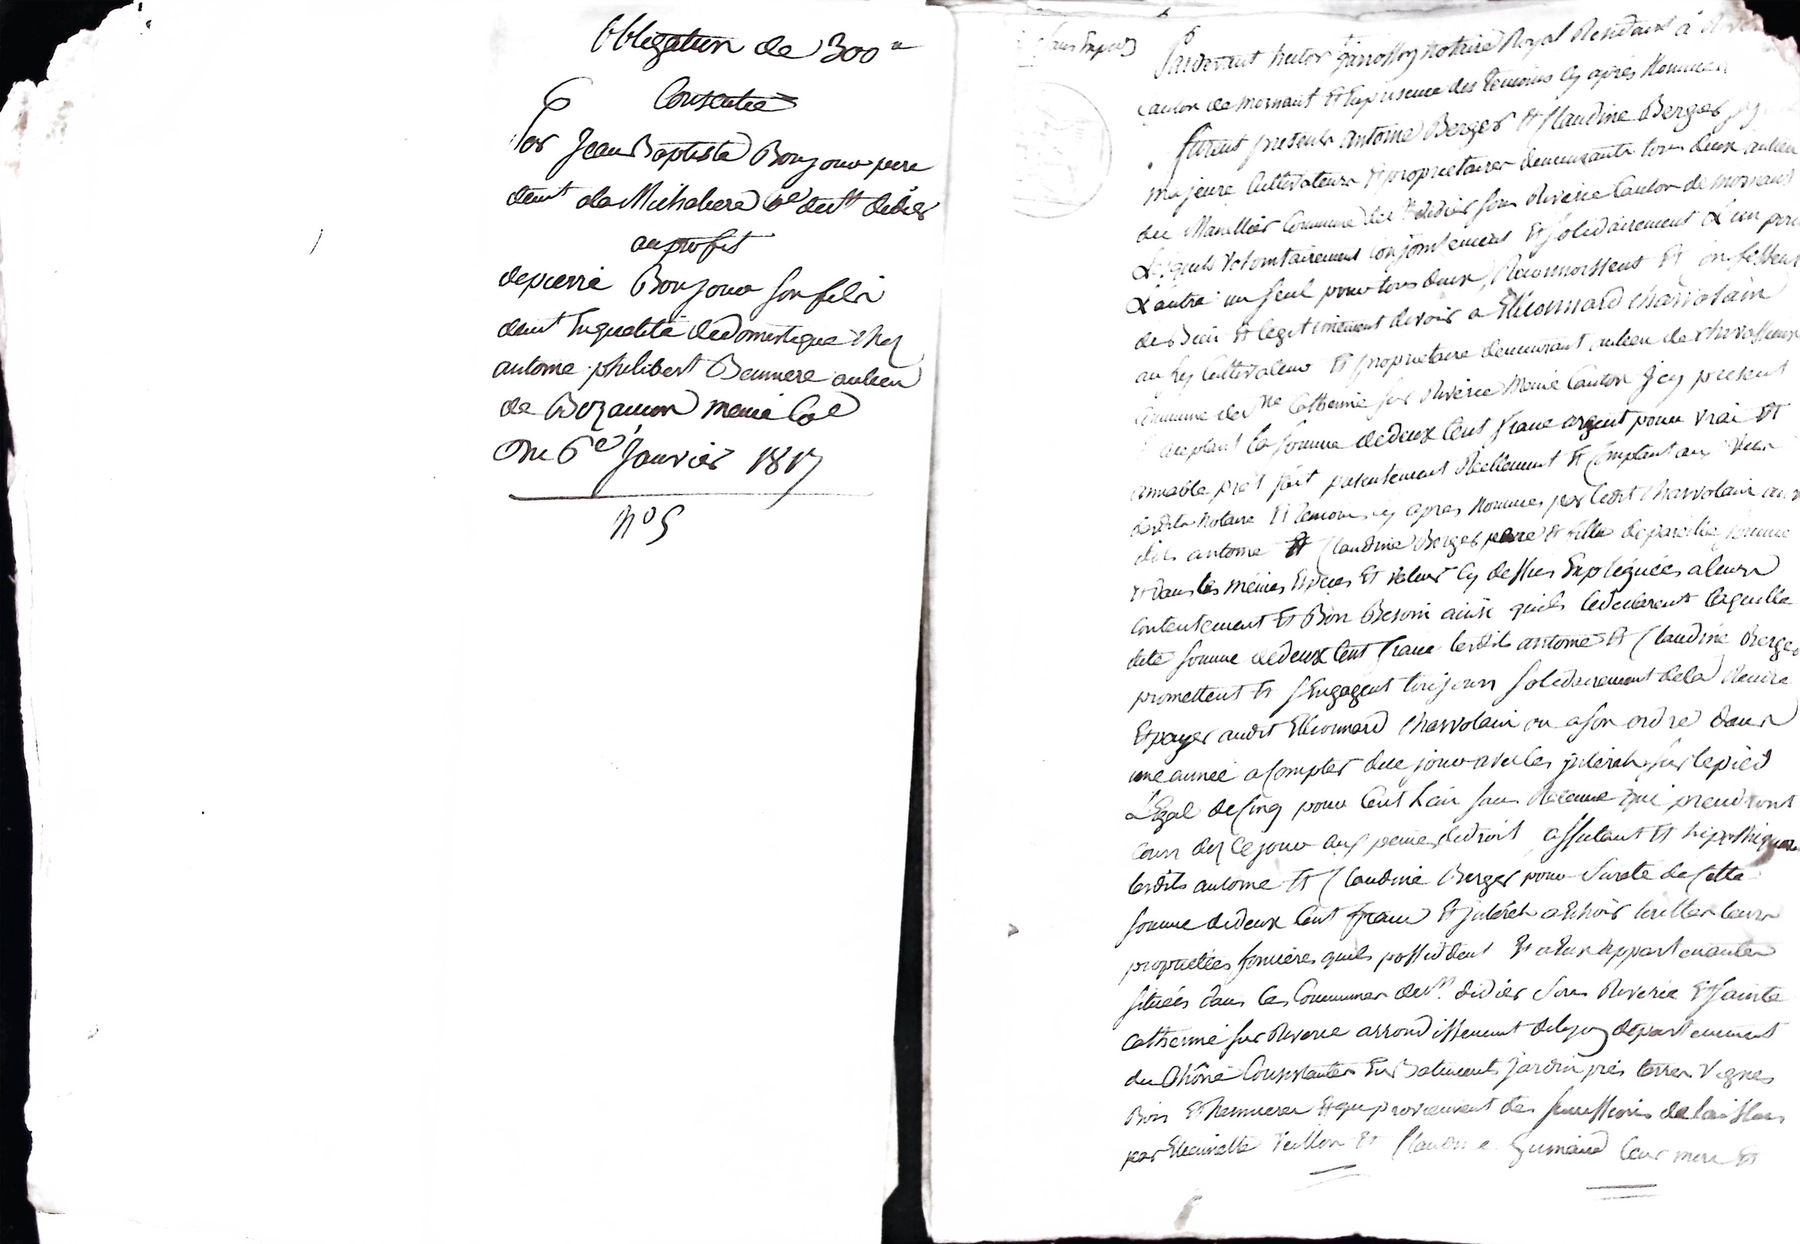 Obligation de 300
Consentie
Par Jean Baptiste Bonjour pere
demt ala Michaliere Cne de st didier
au profit
de pierre Bonjour son fils
demt En qualité de domestique chez
antoine philibert au lieu
de Bozançon meme Cne
Du 6e Janvier 1817
No 5
Pardevant hector notaire Royal Residant à
Canton de mornant Et En presence des temoins Cy après Nommes
furent presents antoine Berger Et Claudine Berger
majeure Cultivateurs Et proprietaires demeurants tous deux au lieu
du Commune de st didier sous Riverie Canton de mornant
Lesquels volontairement conjointement Et solidairement L'un pour
L'autre un seul pour tous deux, Reconnoissent Et confessent
de Bien Et legitimement devoir a Ettiennard Charvolain
Cultivateur Et proprietaire demeurant au lieu de
Commune de Ste Catherine sur Riverie Meme Canton Icy present
acceptant la somme de deux Cent franc argent pour vrai Et
amiable prêt fait presentement Réellement Et Comptant aux vües
desdits Notaire Et temoins cy apres Nommes par ledit Charvolain
dits antoine Et Claudine Berger pere Et fille de pareille somme
Et dans les mêmes Espèces Et valeur Cy dessus Expliquées a leurs
contentement Et Bon Besoin ainsi quils le declarent laquelle
dite somme de deux Cent franc lesdits antoine Et Claudine Berger
promettent Et s'Engagent toujours solidairement de la Rendre
Et payer audit Ettiennard Charvolain ou a son ordre dans
une année a Compter de ce jour avec les jnterêts sur le pied
Légal de Cinq pour Cent L'an sans Retenue qui prendront
cours dez Ce jour aux peines de droit, affectant Et hipothiquant
lesdits antoine Et Claudine Berger pour Sureté de Cette
somme de deux Cent franc Et jnterêts a Echoir toutes leurs
propriétées foncières quils possèdent Et a Eux appartenantes
situées dans les Communes de st didier sous Riverie Et sainte
Catherine sur Riverie arrondissement de lyon departement
du Rhône Consistantes En Batiments Jardin prés terres Vignes
Bois Et Et qui proviennent des successions delaissées
par Ettiennette Et Claudine leur mere Et